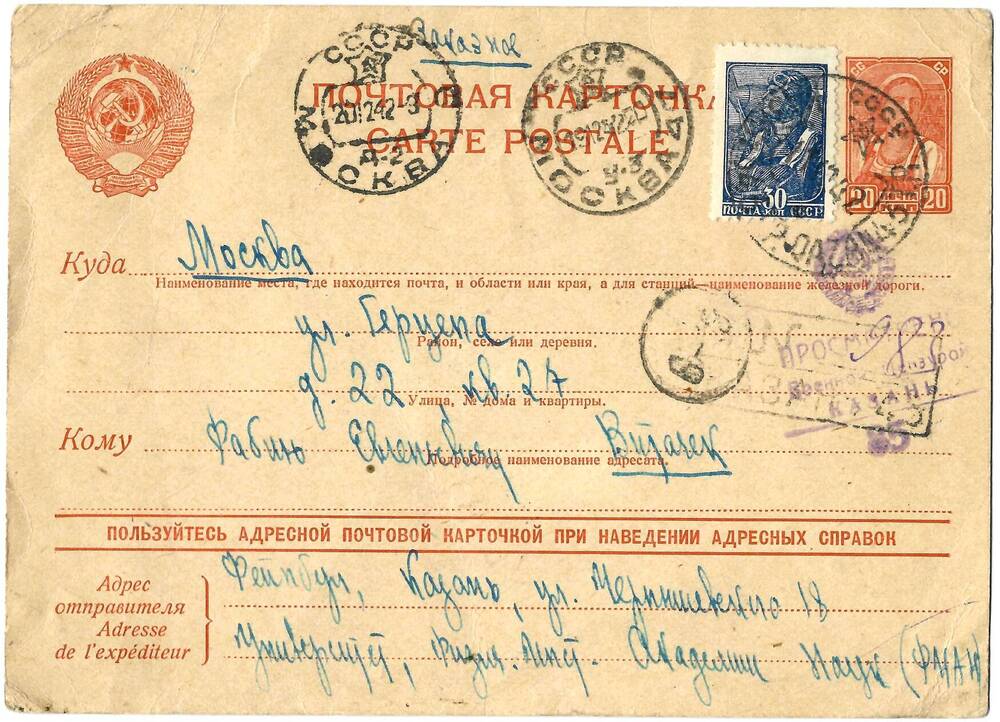 Заказное
ПОЧТОВАЯ КАРТОЧКА
CARTE POSTALE
СССР МОСКВА 20 12 42 Д-2
СССР МОСКВА
30
ПОЧТА КОП СССР
СССР
20 КОП 20
Куда Москва
Наименование места, где находится почта, и области или края, а для станций—наименование железной дороги.
ул. Герцена
Район, село или деревня.
д. 22 кв. 27
Улица, № дома и квартиры.
ПРОСМОТРЕНО
Военной Цензурой
КАЗАНЬ
Кому Фабию Евгеньевичу Витачек
Подробное наименование адресата.
ПОЛЬЗУЙТЕСЬ АДРЕСНОЙ ПОЧТОВОЙ КАРТОЧКОЙ ПРИ НАВЕДЕНИИ АДРЕСНЫХ СПРАВОК
Адрес отправителя
Adresse de l'expéditeur
Казань, ул. Чернышевского 18
Университет, Физич. Инст. Академии Наук (ФИАН)